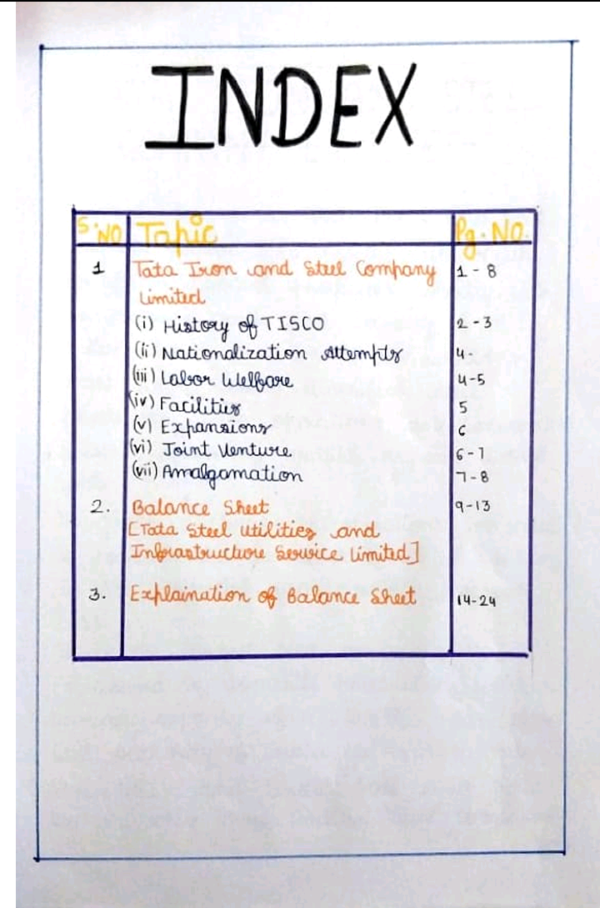 INDEX
S.NO Topic Pg.NO.
1 Tata Iron and Steel Company 1 - 8
Limited
(i) History of TISCO 2 - 3
(ii) Nationalization Attempts 4
(iii) Labor Welfare 4-5
(iv) Facilities 5
(v) Expansions 6
(vi) Joint Venture 6 - 7
(vii) Amalgamation 7 - 8
2. Balance Sheet 9-13
[Tata Steel utilities and
Infrastructure Service Limited]
3. Explaination of Balance Sheet 14-24